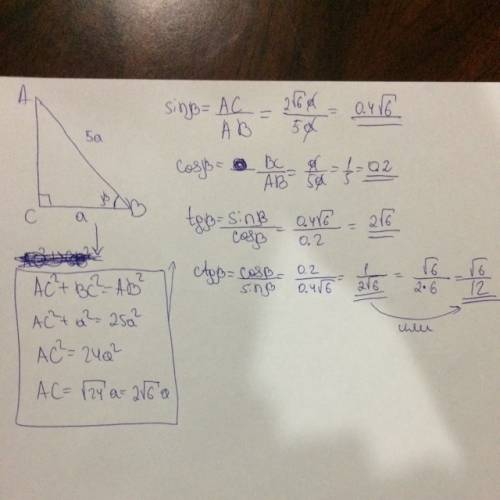 A
5a
C a β B
AC² + BC² = AB²
AC² + a² = 25a²
AC² = 24a²
AC = √24 a = 2√6 a
sinβ = AC/AB = 2√6 a/5a = 0.4√6
cosβ = BC/AB = a/5a = 1/5 = 0.2
tgβ = sinβ/cosβ = 0.4√6/0.2 = 2√6
ctgβ = cosβ/sinβ = 0.2/0.4√6 = 1/2√6 = √6/2·6 = √6/12
или